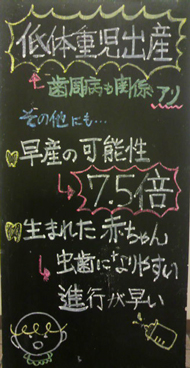 低体重児出産
歯周病も関係アリ
その他にも…
早産の可能性
7.5倍
生まれた赤ちゃん
虫歯になりやすい
進行が早い